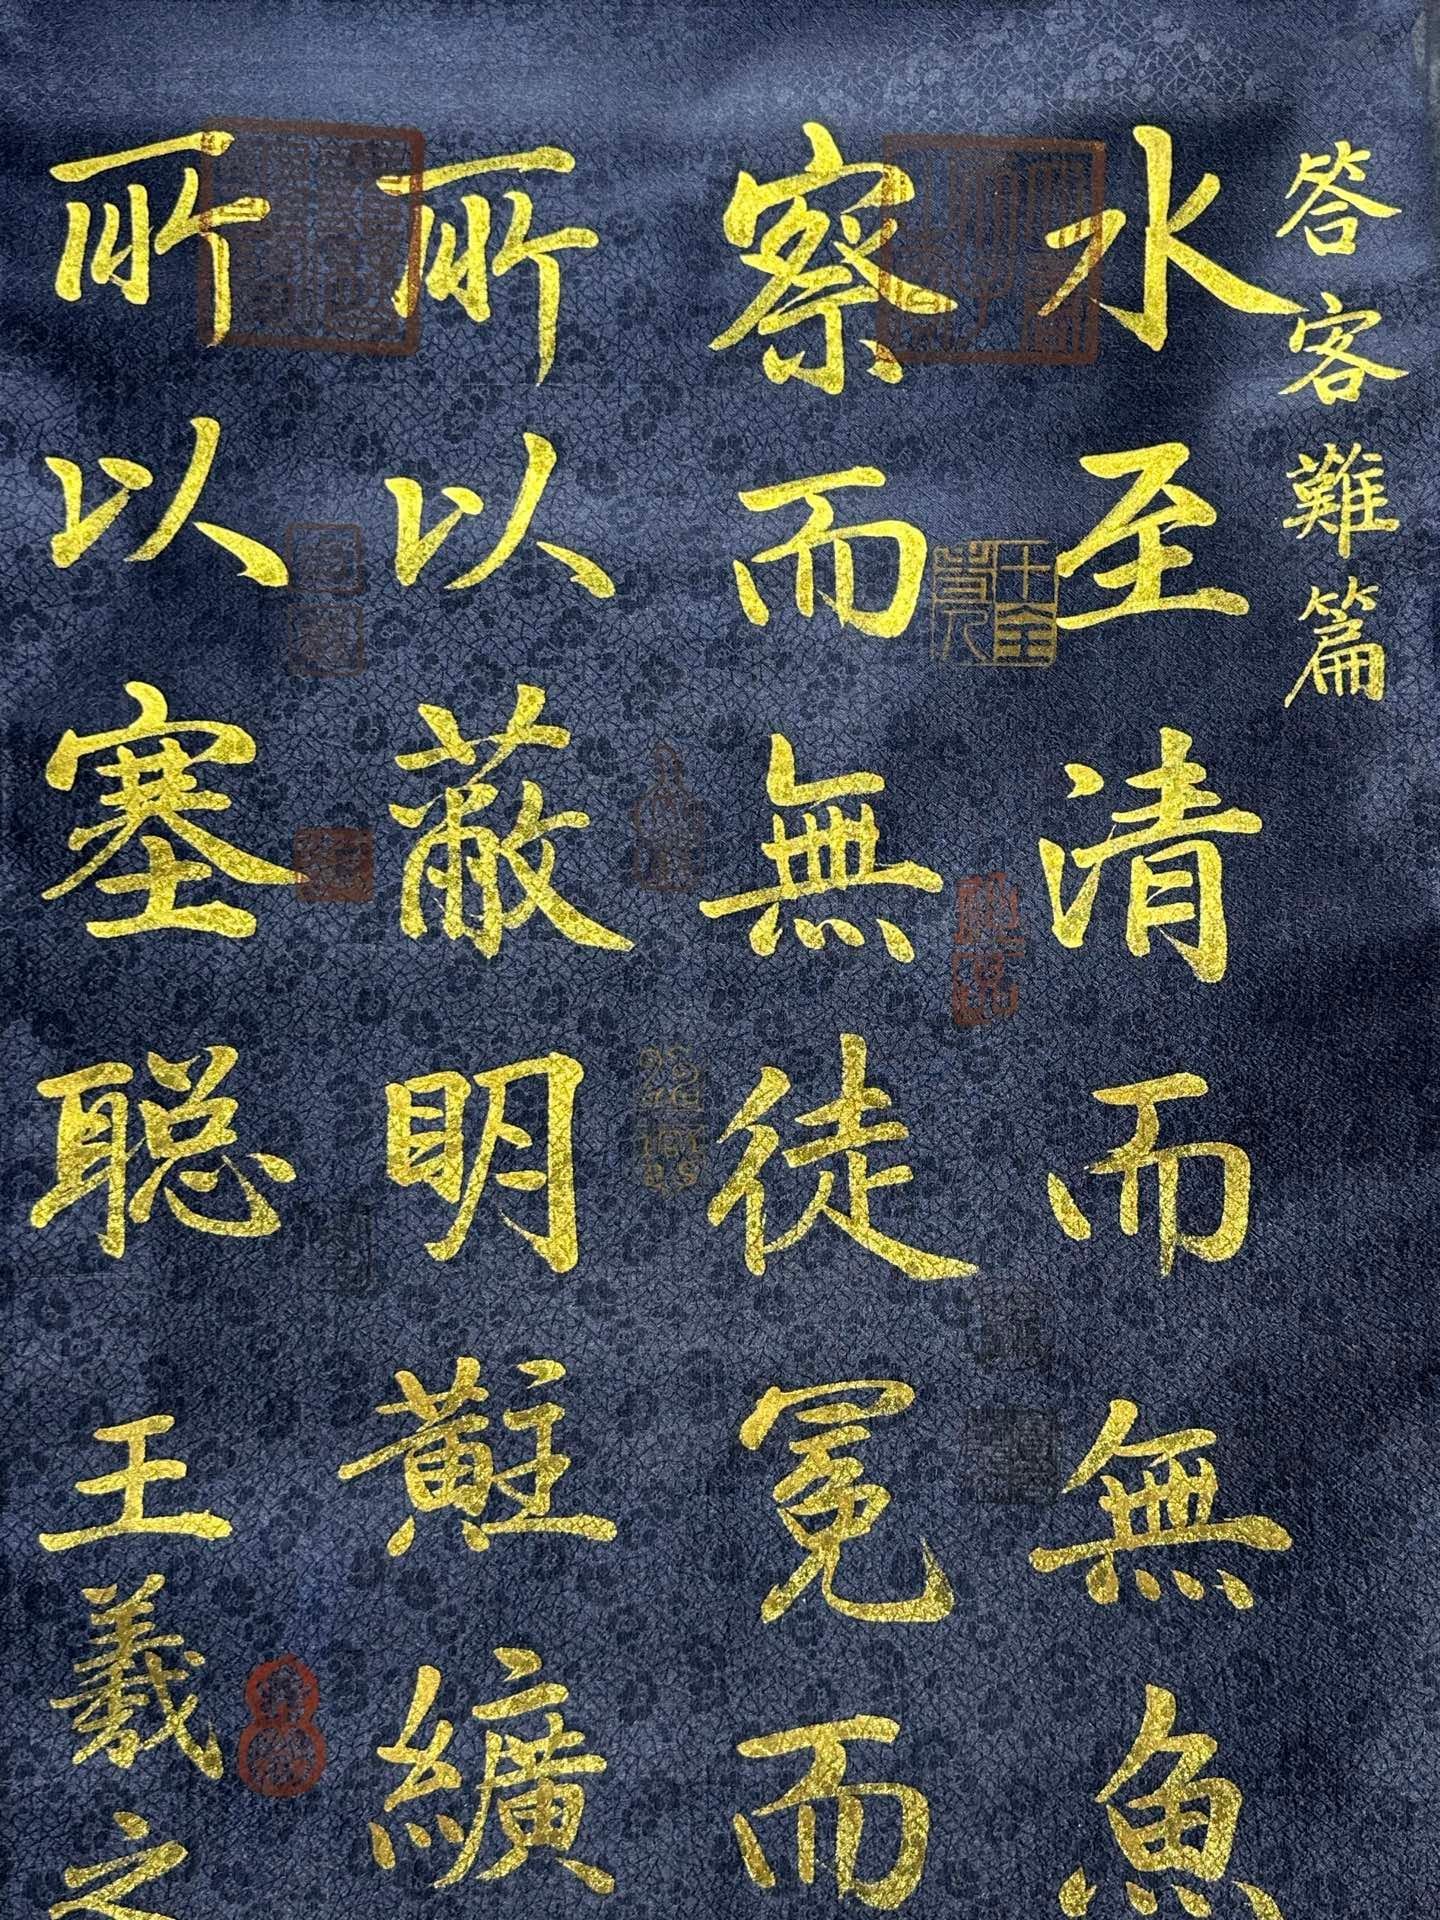 答客難篇
水至清而無魚
察而無徒冕而
所以蔽明黈纊
所以塞聰王羲之
十全